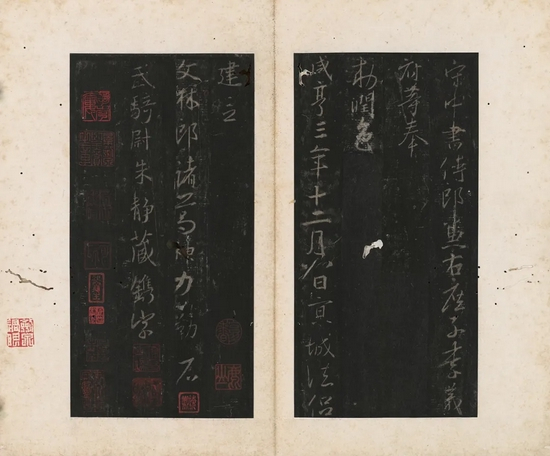 守中書侍郎兼右庶子李義
府等奉
勅潤色
咸亨三年十二月八日京城法侶
建立
文林郎諸葛神力勒石
武騎尉朱靜藏鐫字